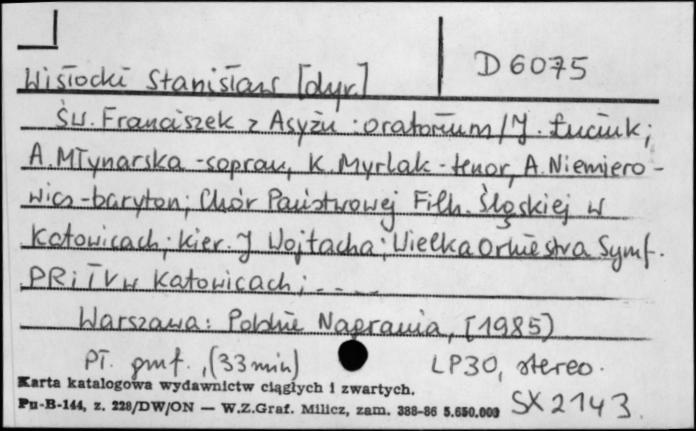 D 6075
Wisłocki Stanisław [dyr.]
Św. Franciszek z Asyżu : oratorium / J. Łuciuk ;
A. Młynarska - sopran, K. Myrlak - tenor, A. Niemiero -
wicz - baryton ; Chór Państwowej Filh. Śląskiej w
Katowicach ; kier. J Wojtacha ; Wielka Orkiestra Symf.
PR i TV w Katowicach ; - - - -
Warszawa : Polskie Nagrania, [1985)
Pł. gmf., (33 min) LP30, stereo.
Karta katalogowa wydawnictw ciągłych i zwartych.
Pu-B-144, z. 228/DW/ON — W.Z.Graf. Milicz, zam. 388-86 5.650.000
SX 2143.